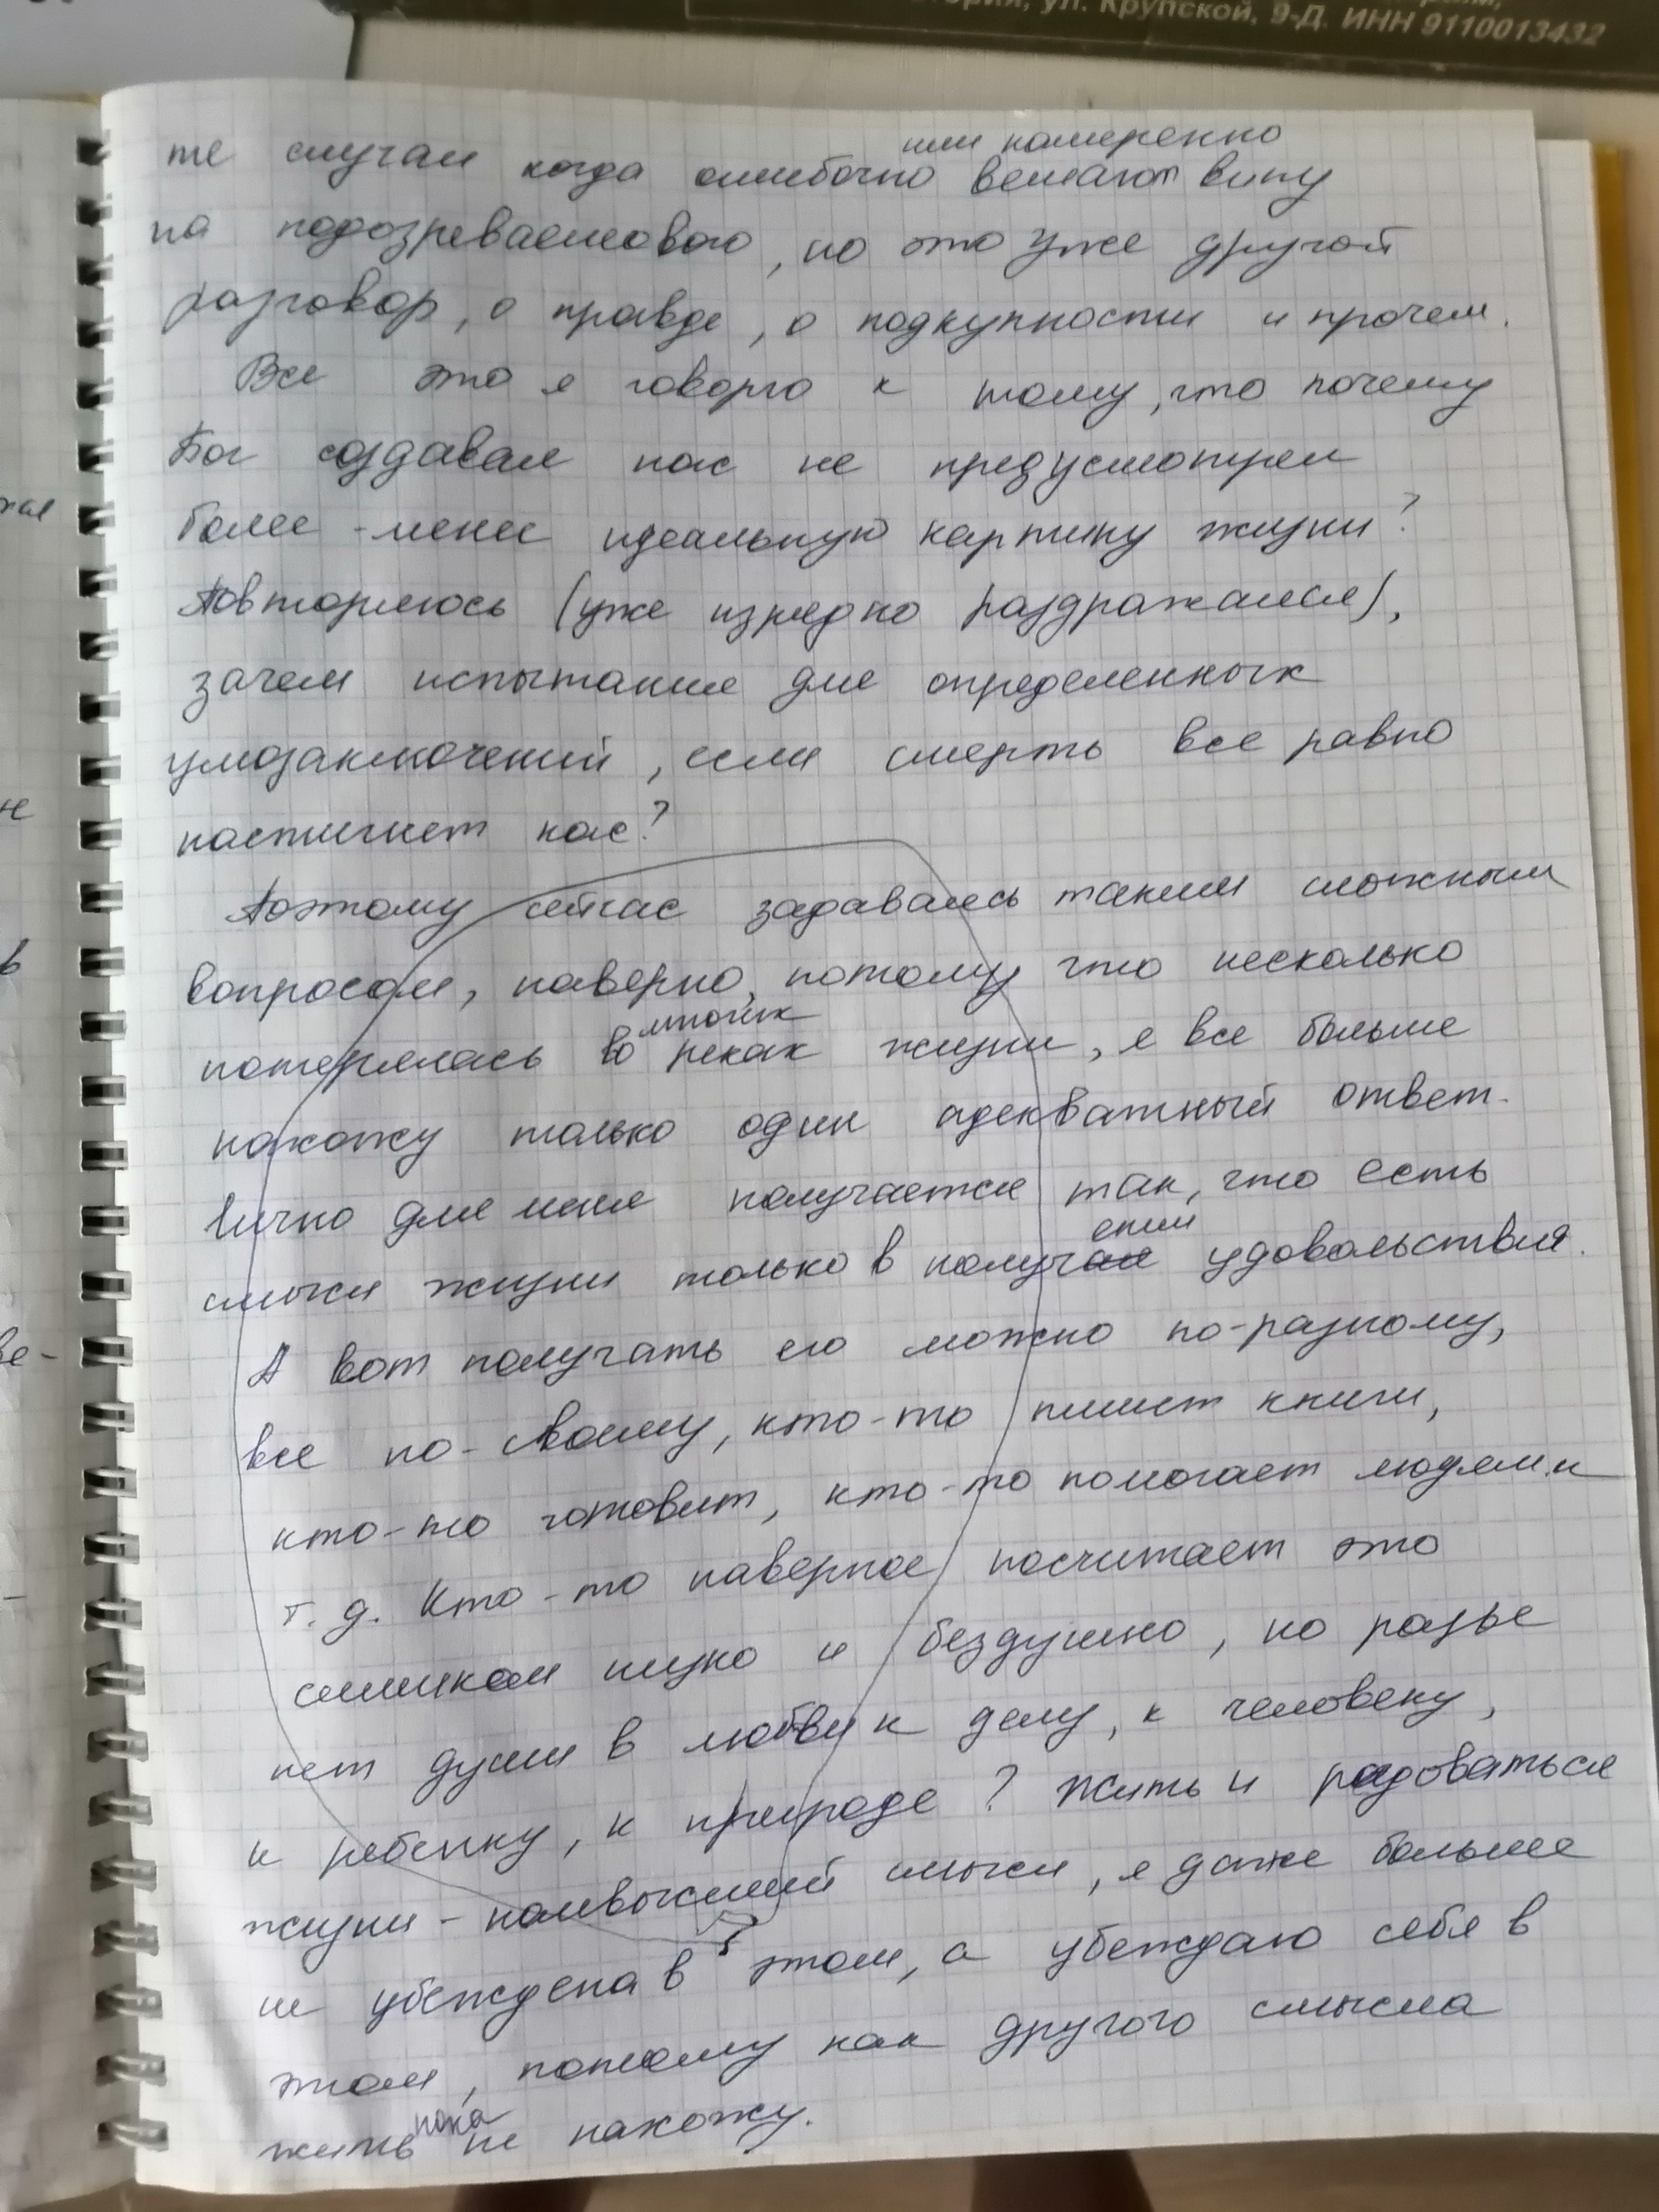 ул. Крупской, 9-Д. ИНН 9110013432
или намеренно
те случаи когда ошибочно вешают вину
на подозреваемового, но это уже другой
разговор, о правде, о подкупности и прочем.
Все это я говорю к тому, что почему
Бог создавая нас не предусмотрел
более-менее идеальную картину жизни?
Повторяюсь (уже изрядно раздражаясь),
зачем испытание для определенных
умозаключений, если смерть все равно
настигнет нас?
Поэтому сейчас задаваясь таким сложным
вопросом, наверно, потому что несколько
многих
потерялась во реках жизни, я все больше
нахожу только один адекватный ответ.
Лично для меня получается так, что есть
ении
смысл жизни только в получая удовольствия.
А вот получать его можно по-разному,
все по-своему, кто-то пишет книги,
кто-то готовит, кто-то помогает людям и
т. д. Кто-то наверное посчитает это
слишком низко и бездушно, но разве
нет души в любви к делу, к человеку,
к ребенку, к природе? Жить и радоваться
жизни - наивысший смысл, я даже больше
не убеждена в этом, а убеждаю себя в
этом, потому как другого смысла
пока
жить не нахожу.